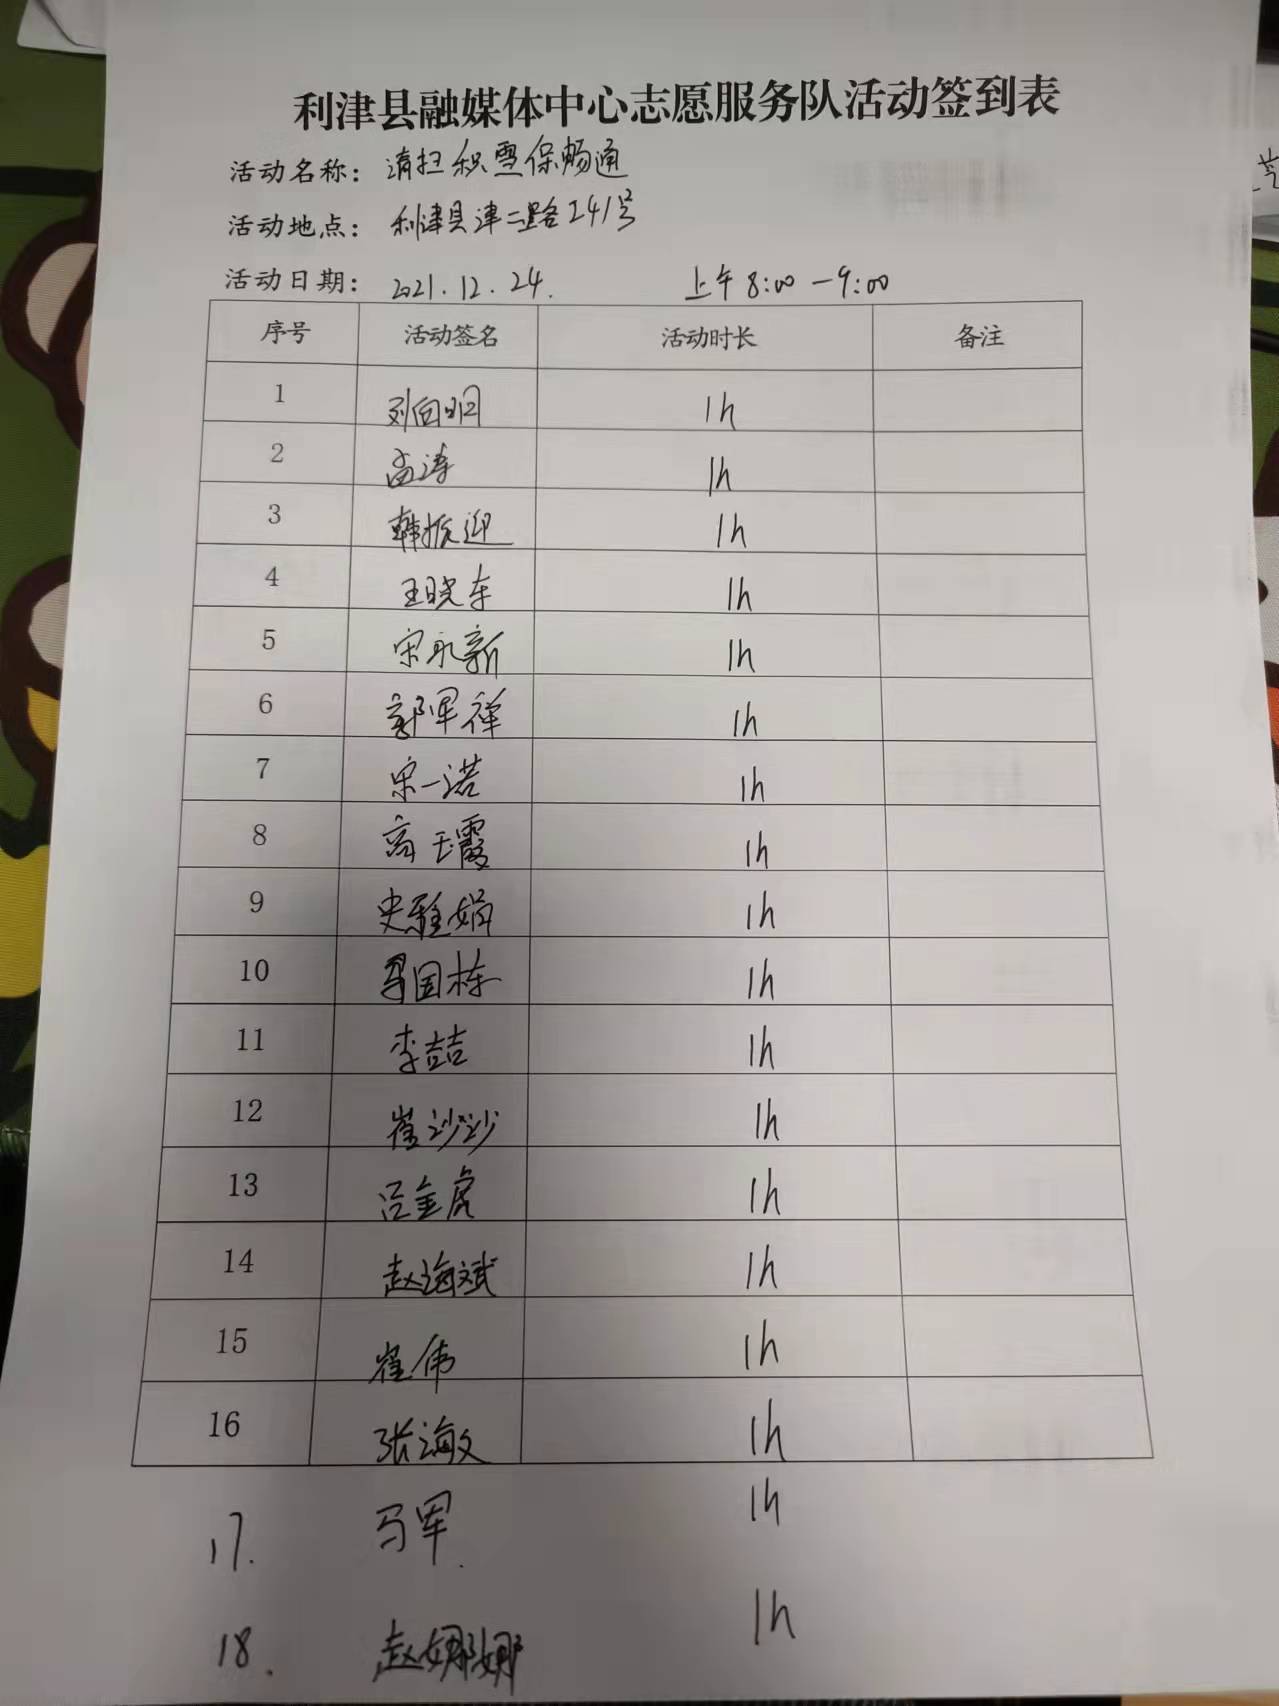 利津县融媒体中心志愿服务队活动签到表
活动名称：清扫积雪保畅通
活动地点：利津县津二路241号
活动日期：2021.12.24. 上午8:00-9:00
序号 活动签名 活动时长 备注
1 刘向明 1h
2 孟涛 1h
3 韩振迎 1h
4 王晓东 1h
5 宋永新 1h
6 郭军祥 1h
7 宋一诺 1h
8 高玉霞 1h
9 史雅娟 1h
10 国栋 1h
11 李喆 1h
12 崔沙沙 1h
13 吕金虎 1h
14 赵海斌 1h
15 崔伟 1h
16 张海文 1h
17. 马军. 1h
18. 赵娜娜 1h